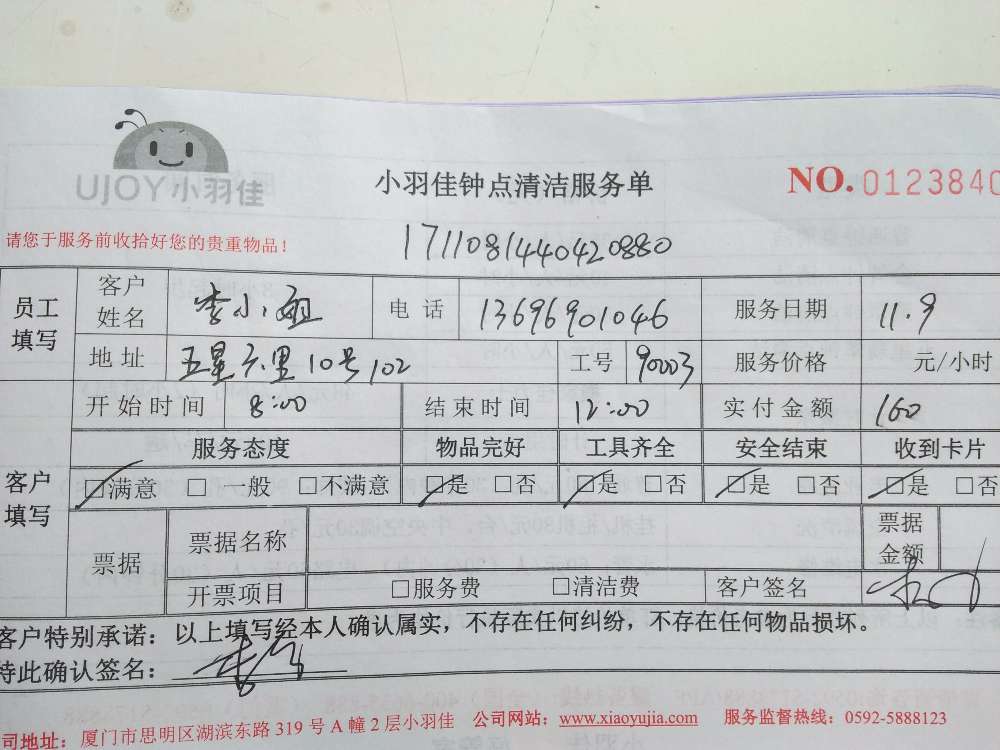 UJOY小羽佳
小羽佳钟点清洁服务单
NO.0123840
请您于服务前收拾好您的贵重物品！
1711081440420880
员工填写 客户姓名 李小姐 电话 13696901046 服务日期 11.9
地址 五星六里10号102 工号 90003 服务价格 元/小时
开始时间 8:00 结束时间 12:00 实付金额 160
客户填写 服务态度 物品完好 工具齐全 安全结束 收到卡片
☑满意 □一般 □不满意 ☑是 □否 ☑是 □否 ☑是 □否 ☑是 □否
票据 票据名称 票据金额
开票项目 □服务费 □清洁费 客户签名
客户特别承诺：以上填写经本人确认属实，不存在任何纠纷，不存在任何物品损坏。
特此确认签名：
公司地址：厦门市思明区湖滨东路319号A幢2层小羽佳 公司网站：www.xiaoyujia.com 服务监督热线：0592-5888123